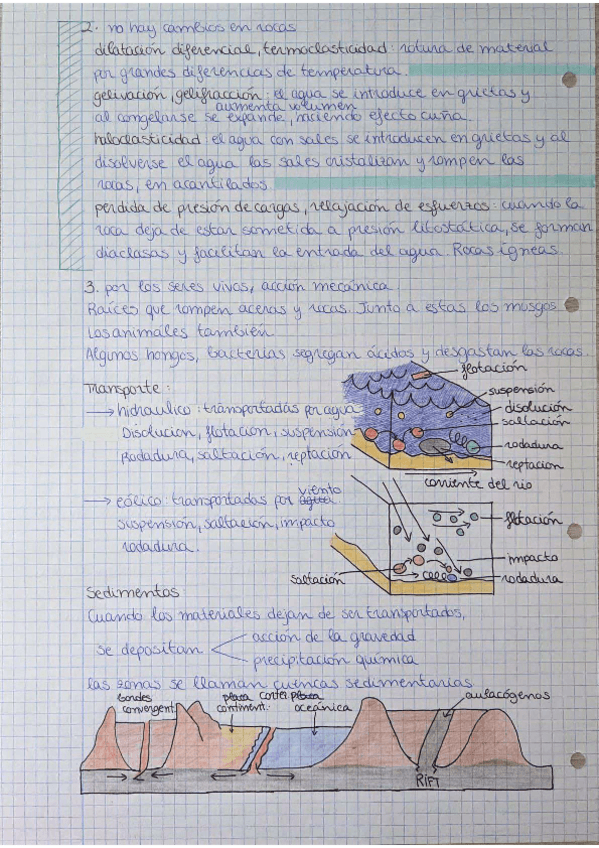 2. no hay cambios en rocas
dilatación diferencial, termoclasticidad: rotura de material
por grandes diferencias de temperatura.
gelivación, gelifracción: el agua se introduce en grietas y
aumenta volumen
al congelarse se expande, haciendo efecto cuña.
haloclasticidad: el agua con sales se introducen en grietas y al
disolverse el agua las sales cristalizan y rompen las
rocas, en acantilados
perdida de presión de cargas, relajación de esfuerzos: cuando la
roca deja de estar sometida a presión litostática, se forman
diaclasas y facilitan la entrada del agua. Rocas ígneas.
3. por los seres vivos, acción mecánica.
Raíces que rompen aceras y rocas. Junto a estas los musgos
Los animales también.
Algunos hongos, bacterias segregan ácidos y desgastan las rocas.
Transporte:
→ hidraulico: transportadas por agua
Disolucion, flotación, suspensión
Rodadura, saltación, reptación
flotación
suspensión
disolución
saltación
rodadura
reptación
corriente del río
→ eólico: transportados por viento
suspensión, saltación, impacto
rodadura.
flotación
impacto
rodadura
saltación
Sedimentos:
Cuando los materiales dejan de ser transportados,
se depositan
acción de la gravedad
precipitación química
las zonas se llaman cuencas sedimentarias
bordes
convergent.
plata
continent.
oceánica
aulacógenos
RIFT